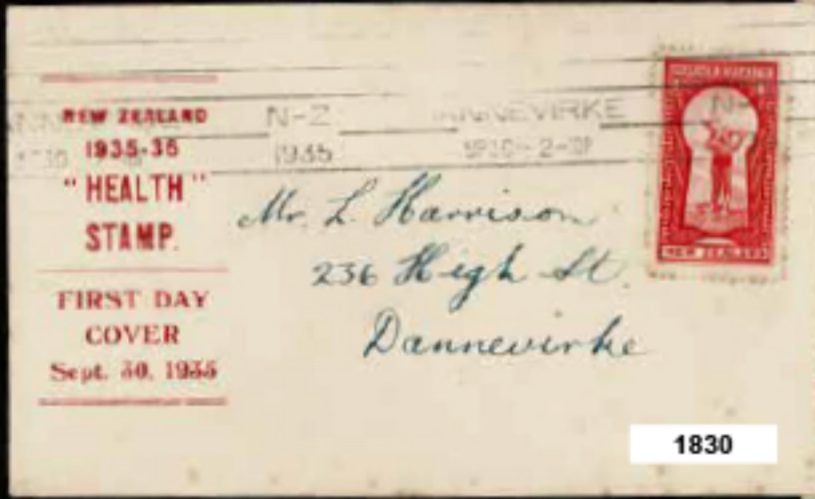 NEW ZEALAND
1935-36
"HEALTH"
STAMP.
FIRST DAY
COVER
Sept. 30, 1935
N-Z
1935
ANNEVIRKE
Mr. L. Harrison
236 High St.
Dannevirke
NEW ZEALAND
1830